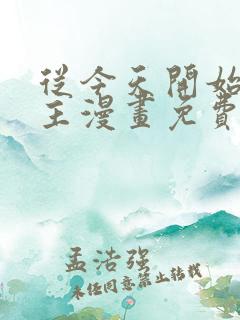 從今天開始
王漫畫免費
孟浩強
未任同意禁止轉載